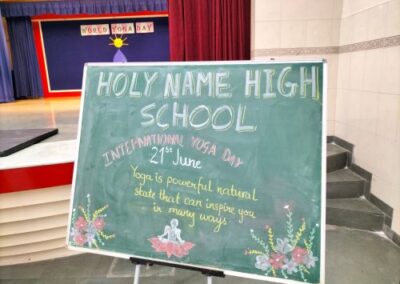 WORLD YOGA DAY
HOLY NAME HIGH
SCHOOL
INTERNATIONAL YOGA DAY
21st June
Yoga is powerful natural
state that can inspire you
in many ways